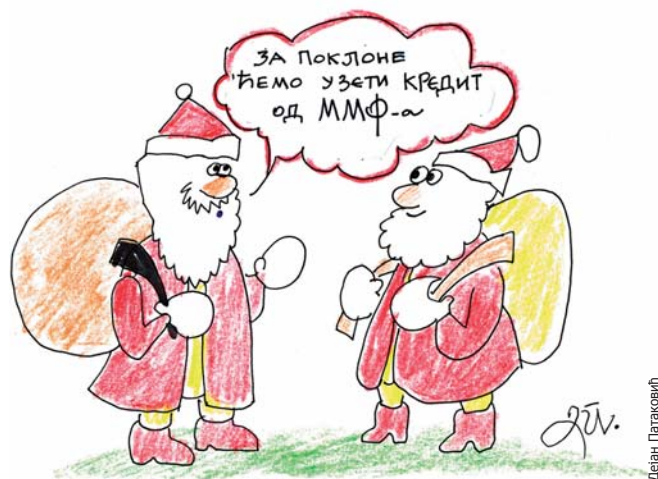 ЗА ПОКЛОНЕ
ЋЕМО УЗЕТИ КРЕДИТ
ОД ММФ-а
Дејан Патаковић